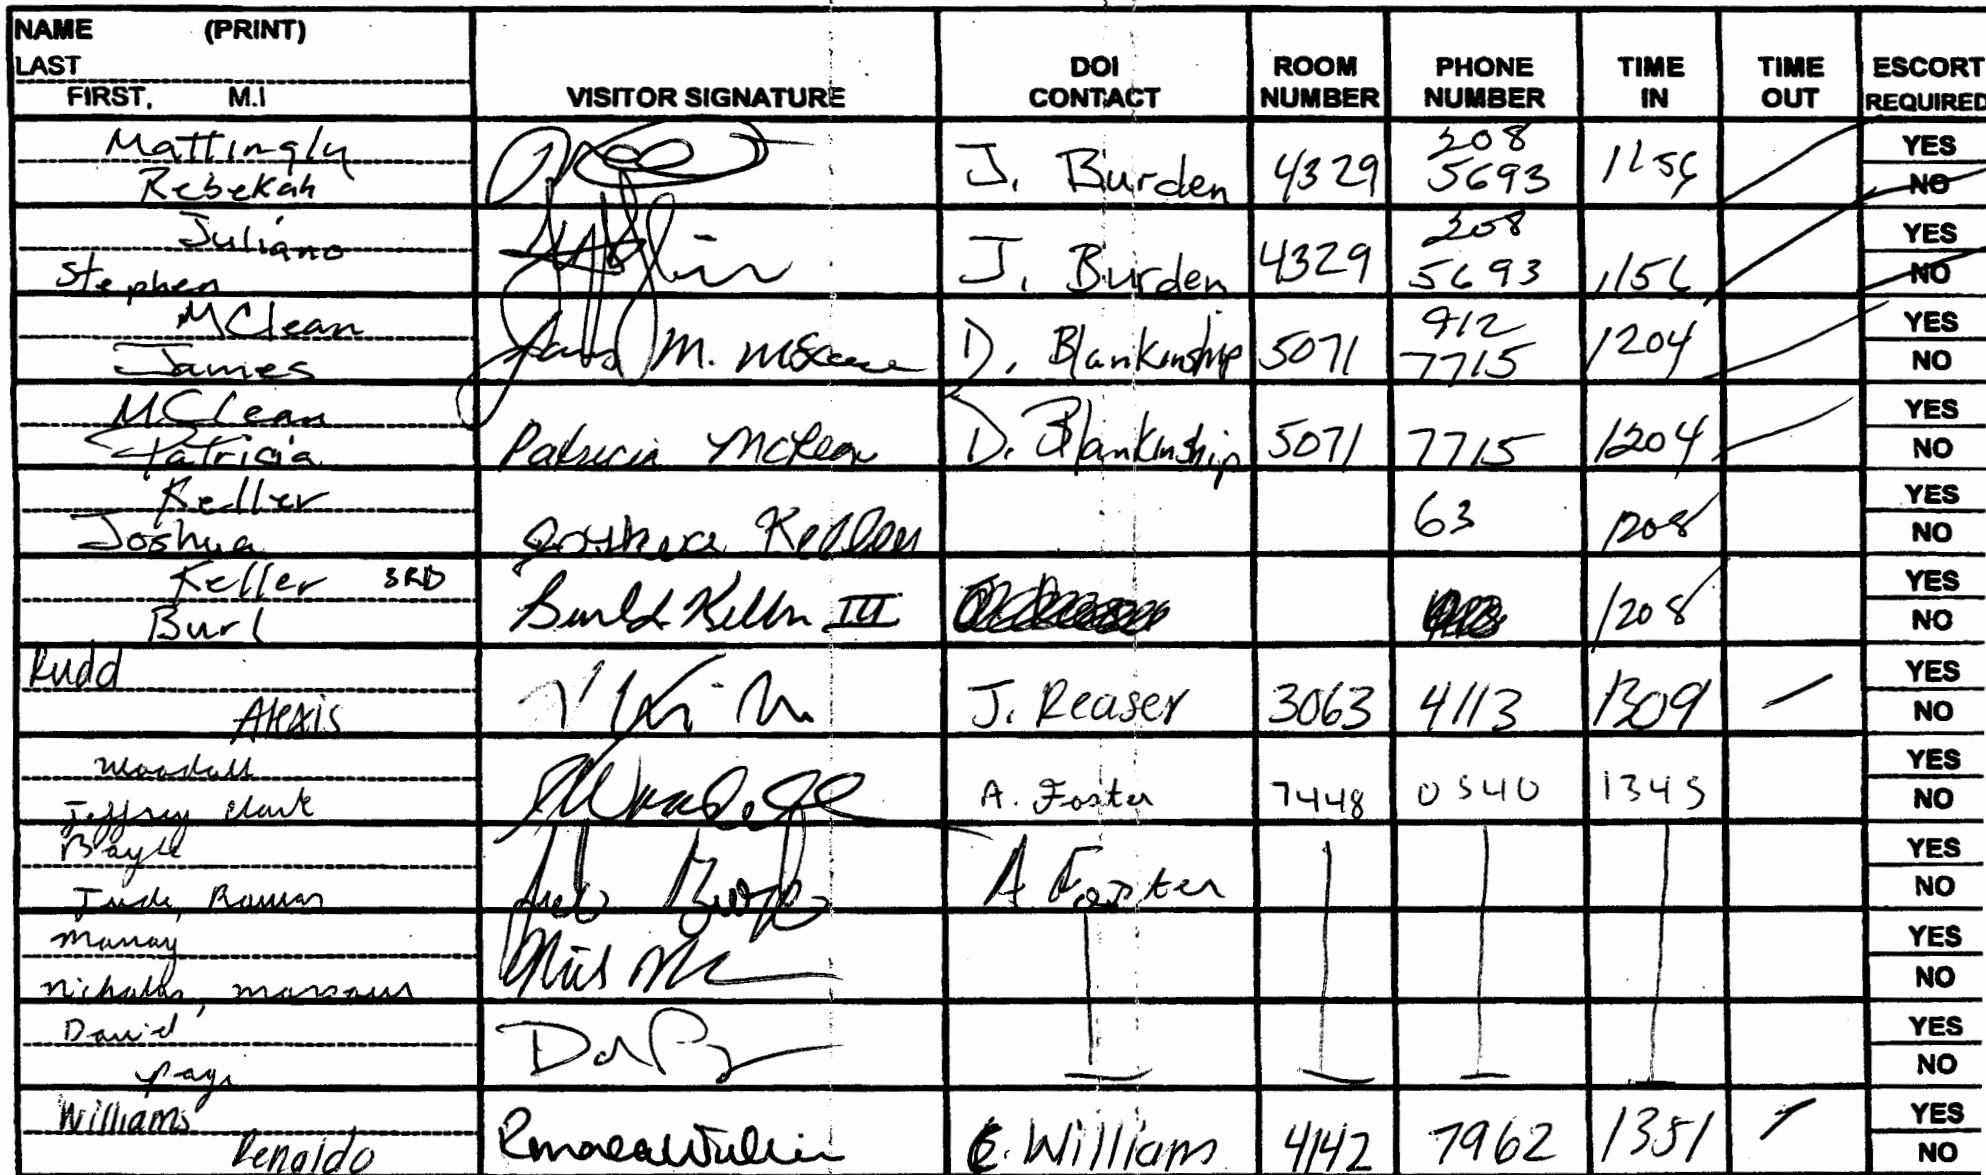 NAME (PRINT)
LAST
FIRST, M.I
VISITOR SIGNATURE
DOI CONTACT
ROOM NUMBER
PHONE NUMBER
TIME IN
TIME OUT
ESCORT REQUIRED
Mattingly
Rebekah
J. Burden 4329 208 5693 1156
YES
NO
Juliano
Stephen
J. Burden 4329 208 5693 1156
YES
NO
MClean
James
James M. D. Blankinship 5071 912 7715 1204
YES
NO
MClean
Patricia
Patricia McLean D. Blankinship 5071 7715 1204
YES
NO
Keller
Joshua
Joshua Keller 63 1208
YES
NO
Keller 3RD
Burl
Burl Keller III 1208
YES
NO
Rudd
Alexis
J. Reaser 3063 4113 1309
YES
NO
Woodall
Jeffrey Clark
A. Foster 7448 0540 1345
YES
NO
Jude,
A Foster
YES
NO
Nicholas,
YES
NO
David
YES
NO
Williams
Renaldo
C. Williams 4142 7962 1351
YES
NO